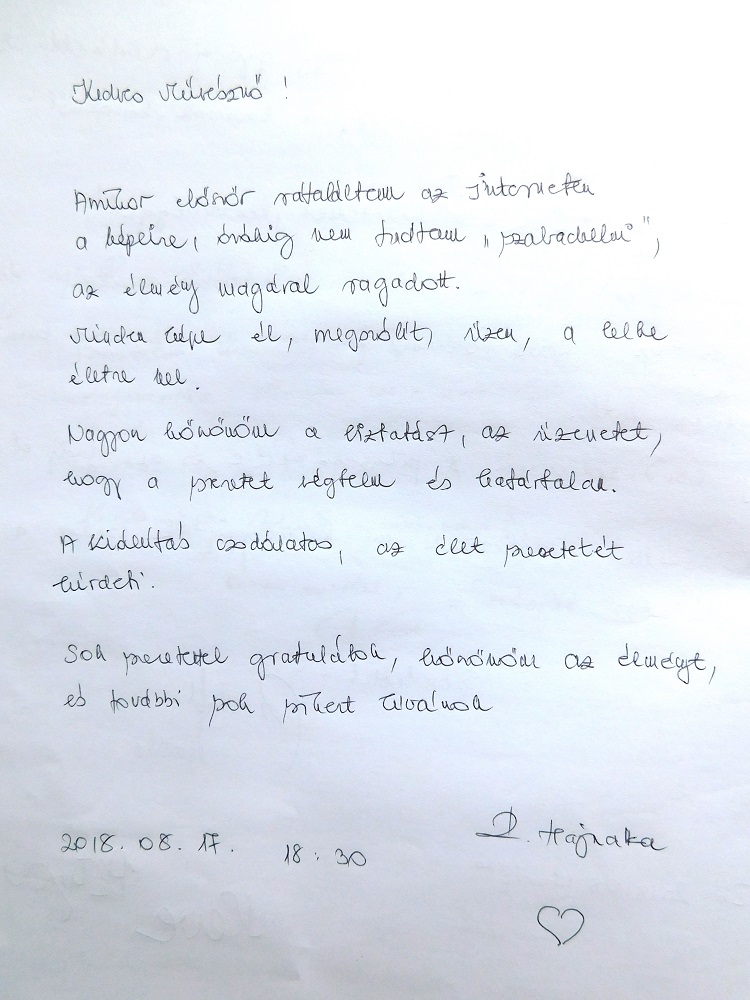 Kedves Művésznő !
Amikor először rátaláltam az interneten
a képeire, órákig nem tudtam „szabadulni”,
az élmény magával ragadott.
Minden képe él, megszólít, üzen, a lelke
életre kel.
Nagyon köszönöm a biztatást, az üzenetet,
hogy a szeretet végtelen és határtalan.
A kiállítás csodálatos, az élet szeretetét
hirdeti.
Sok szeretettel gratulálok, köszönöm az élményt,
és további sok sikert kívánok
2018. 08. 17. 18 : 30
Hajnalka